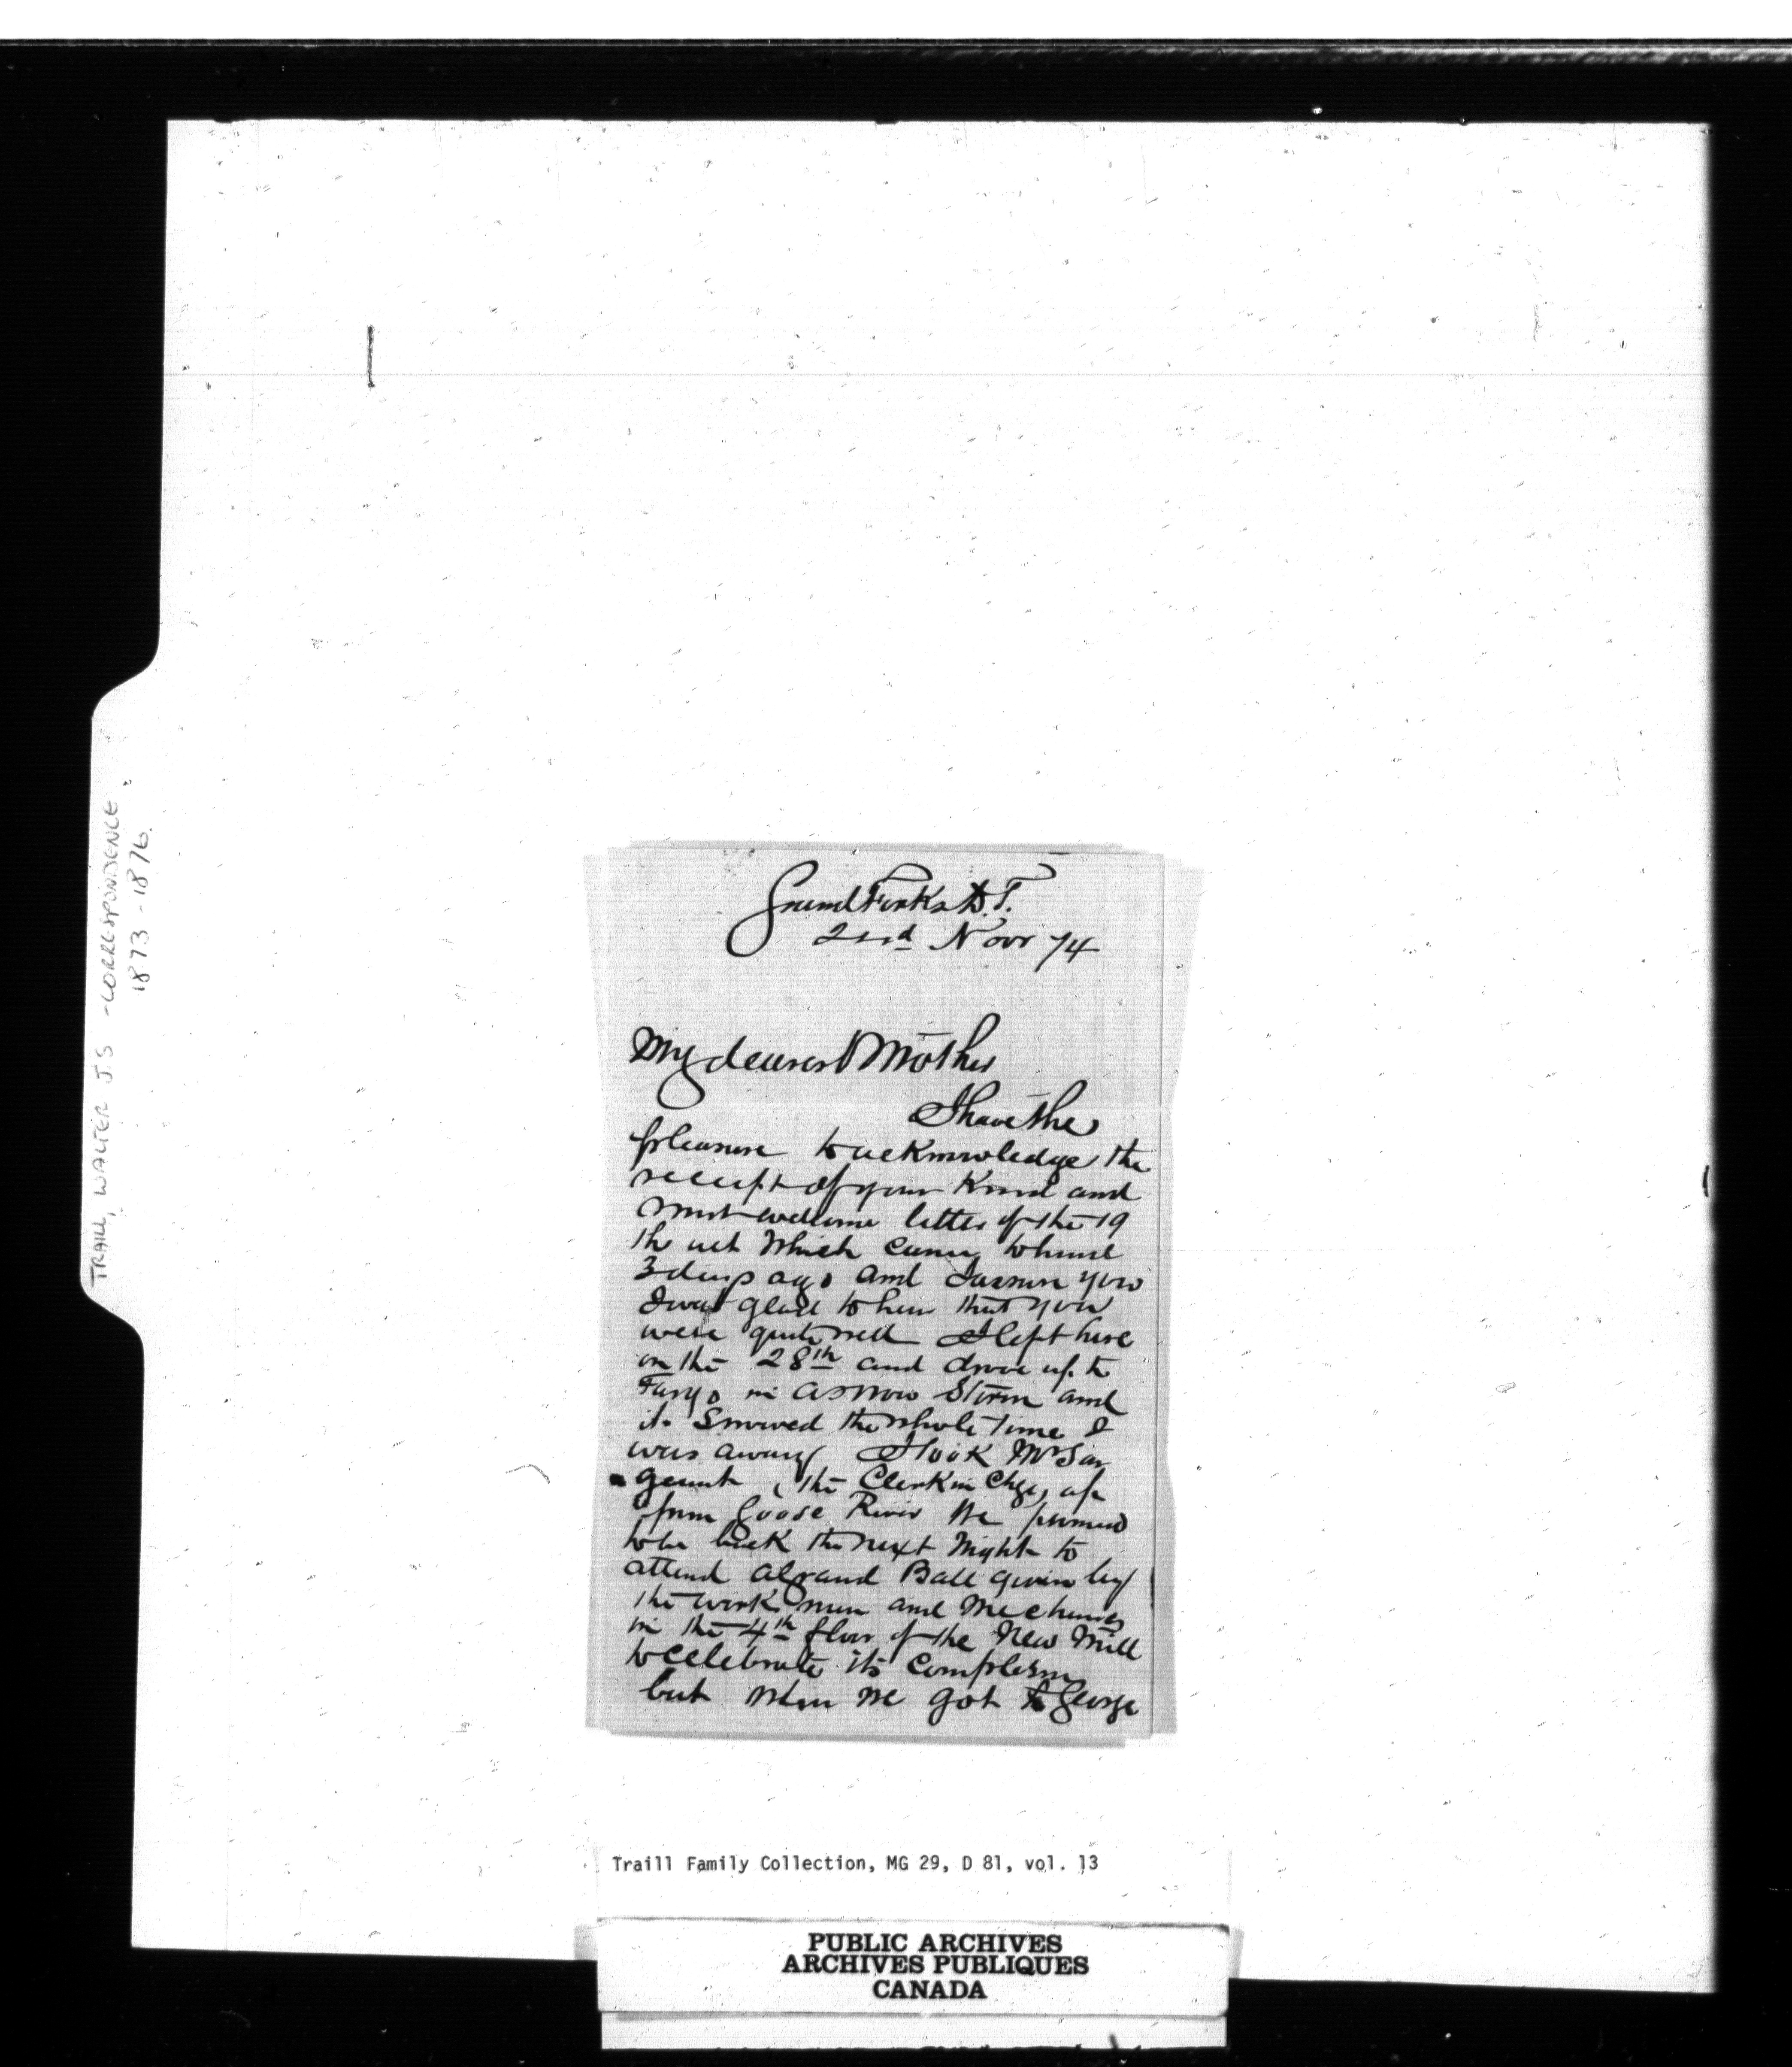 TRAILL, WALTER J.S - CORRESPONDENCE
1873-1876.
Grand Forks D.T.
22nd Novr 74
My dearest Mother
I have the
pleasure to acknowledge the
receipt of your Kind and
most welcome letter of the 19
th ult Which came to hand
3 days ago and I assure you
I was glad to hear that you
were quite well I left here
on the 28th and drove up to
Fargo in a snow Storm and
it Snowed the whole time I
was away I took Mr Sar
geant, the Clerk in Chge, up
from Goose River We promised
to be back the next Night to
attend a Grand Ball given by
the work men and Mechanics
in the 4th floor of the New Mill
to celebrate its Completion
but when we got to George
Traill Family Collection, MG 29, D 81, vol. 13
PUBLIC ARCHIVES
ARCHIVES PUBLIQUES
CANADA